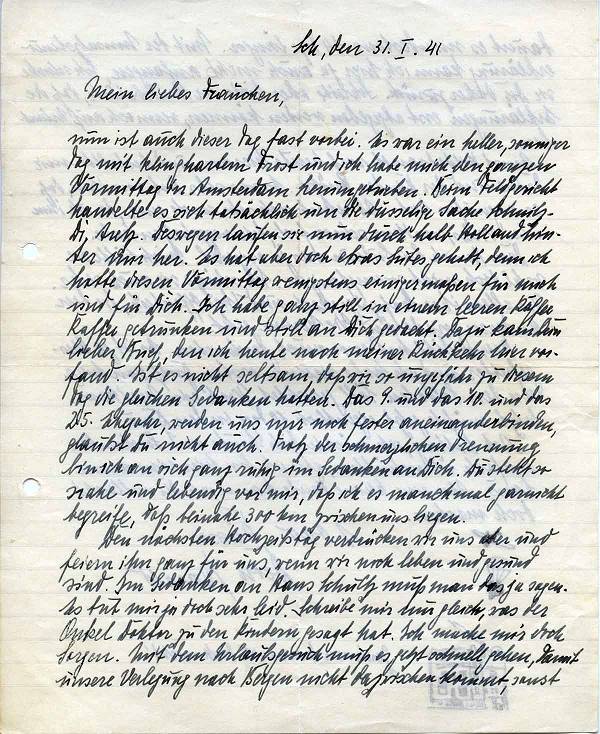 Sch, den 31. I. 41
Mein liebes Frauchen,
nun ist auch dieser Tag fast vorbei. Es war ein heller, sonniger
Tag mit klinghartem Frost und ich habe mich den ganzen
Vormittag in Amsterdam herumgetrieben. Beim Feldgericht
handelte es sich tatsächlich um die dusselige Sache
Deswegen laufen sie nun durch halb Holland hin-
ter mir her. Es hat aber doch etwas Gutes gehabt, denn ich
hatte diesen Vormittag wenigstens einigermaßen für mich
und für Dich. Ich habe ganz still in einem leeren Kaffee
Kaffee getrunken und still an Dich gedacht. Dazu kam Dein
lieber Brief, den ich heute nach meiner Rückkehr hier vor-
fand. Ist es nicht seltsam, daß wir so ungefähr zu diesem
Tag die gleichen Gedanken hatten. Das 9. und das 10. und das
25. Ehejahr, werden uns nur noch fester aneinanderbinden,
glaubst Du nicht auch. Trotz der schmerzlichen Trennung
bin ich an sich ganz ruhig im Gedanken an Dich. Du stehst so
nahe und lebendig vor mir, daß ich es manchmal garnicht
begreife, daß beinahe 300 km zwischen uns liegen.
Den nächsten Hochzeitstag verdrücken wir uns aber und
feiern ihn ganz für uns, wenn wir noch leben und gesund
sind. Im Gedanken an Hans Schultz muß man das ja sagen.
Es tut mir ja doch sehr leid. Schreibe mir nun gleich, was der
Onkel Doktor zu den Kindern gesagt hat. Ich mache mir doch
Sorgen. Mit dem Urlaubsgesuch muß es jetzt schnell gehen, damit
unsere Verlegung nach Bergen nicht dazwischen kommt, sonst